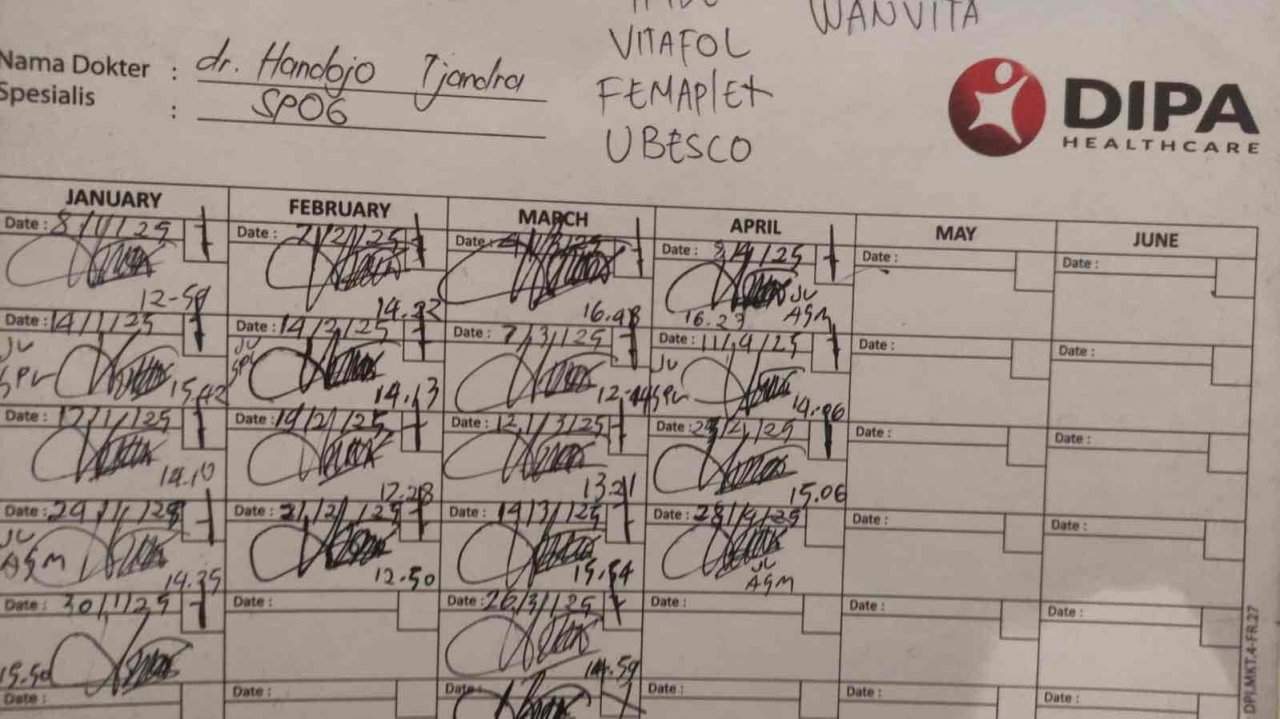 WANVITA
VITAFOL
Nama Dokter : dr. Handojo Tjandra
FEMAPLEX
Spesialis : SPOG
UBESCO
DIPA
HEALTHCARE
JANUARY FEBRUARY MARCH APRIL MAY JUNE
Date : 8/1/25 Date : 7/2/25 Date : 4/3/25 Date : Date : Date :
12-59 14.22 16.48 16.23 JV ASM
Date : 14/1/25 Date : 14/2/25 Date : 7/3/25 Date : 11/4/25 Date : Date :
JV SPV 15.42 JV SPV 14.13 12-44 JV SPV 14.06
Date : 17/1/25 Date : 19/2/25 Date : 12/3/25 Date : Date : Date :
14.10 17.28 13.21 15.06
Date : Date : 21/2/25 Date : 19/3/25 Date : 28/4/25 Date : Date :
JV ASM 14.35 12.50 15.54 JV ASM
Date : 30/1/25 Date : Date : 26/3/25 Date : Date : Date :
15.50 14.59
Date : Date : Date : Date : Date : Date :
DPI.MKT.4-FR.27